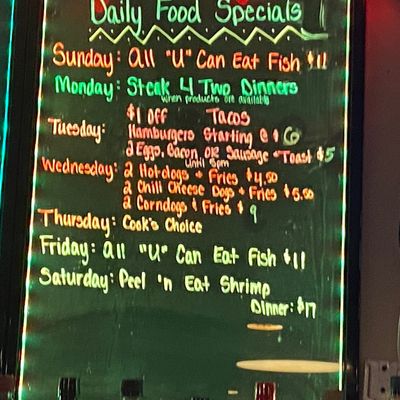 Daily Food Specials
Sunday: All "U" Can Eat Fish $11
Monday: Steak 4 Two Dinners
when products are available
$1 Off Tacos
Tuesday: Hamburgers Starting @ $6
2 Eggs, Bacon, OR Sausage + Toast $5
until 5pm
Wednesday: 2 Hotdogs + Fries $4.50
2 Chili Cheese Dogs + Fries $5.50
2 Corndogs + Fries $9
Thursday: Cook's Choice
Friday: All "U" Can Eat Fish $11
Saturday: Peel 'n Eat Shrimp
Dinner: $17